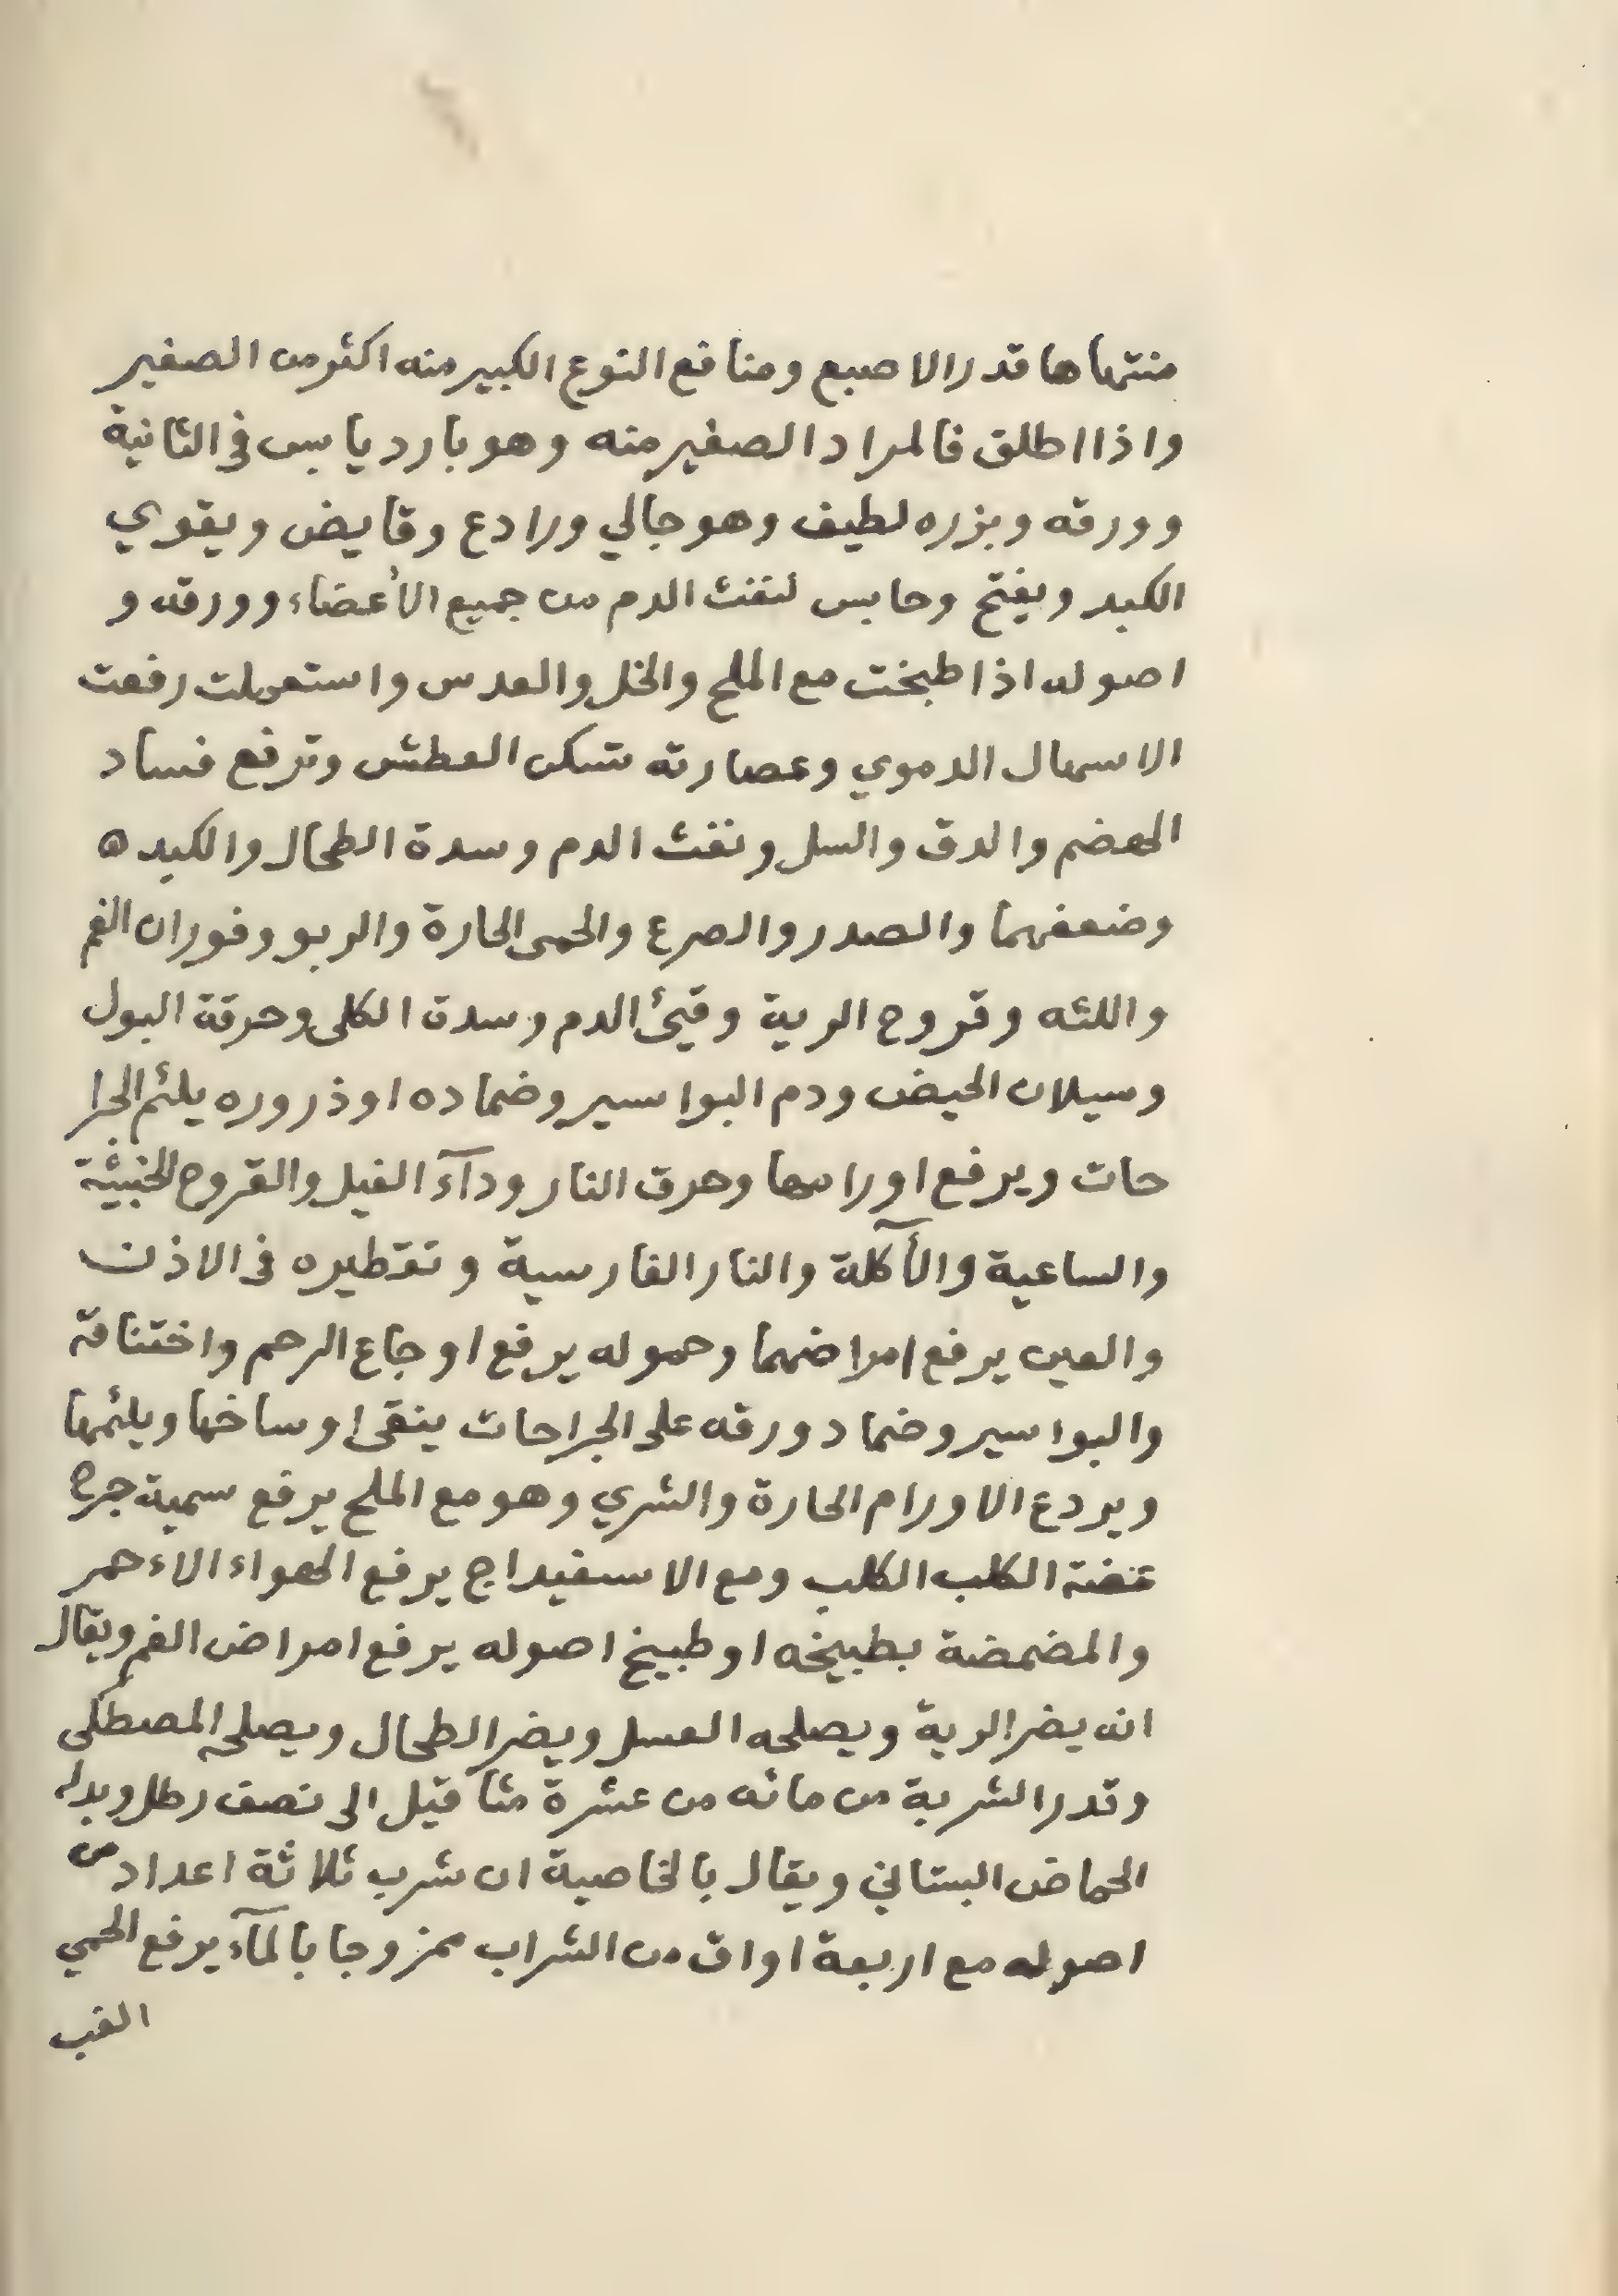 منتهاها قدر الاصبع ومنافع النوع الكبير منه اكثر من الصغير
واذا اطلق فالمراد الصغير منه وهو بارد يابس في الثانية
وورقه وبزره لطيف وهو جالي ورادع وقايض ويقوي
الكبد ويفتح وحابس لنفث الدم من جميع الأعضاء وورقه و
اصوله اذا طبخت مع الملح والخل والعدس واستعملت رفعت
الاسهال الدموي وعصارته تسكن العطش وترفع فساد
الهضم والدق والسل ونفث الدم وسدة الطحال والكبد ه
وضعفهما والصدر والصرع والحمى الحارة والربو وفوران الفم
واللثه وقروح الرية وقيئ الدم وسدة الكلى وحرقة البول
وسيلان الحيض ودم البواسير وضماده او ذروره يلئم الجرا
حات ويرفع اورامها وحرق النار ودآء الفيل والقروح الخبيثة
والساعية والأكلة والنار الفارسية وتقطيره في الاذن
والعين يرفع امراضهما وحموله يرفع اوجاع الرحم واختناقه
والبواسير وضماد ورقه على الجراحات ينقى اوساخها ويلئمها
ويردع الاورام الحارة والشري وهو مع الملح يرفع سمية جرح
عضة الكلب الكلب ومع الاسفيداج يرفع الهواء الاءحمر
والمضمضة بطبيخه او طبيخ اصوله يرفع امراض الفم ويقال
انه يضر الرية ويصلحه العسل ويضر الطحال ويصلحه المصطكى
وقدر الشربة من مائه من عشرة مثاقيل الى نصف رطل وبدله
الحماض البستاني ويقال بالخاصية ان شرب ثلاثة اعداد من
اصوله مع اربعة اواق من الشراب ممزوجا بالمآء يرفع الحمي
الغب